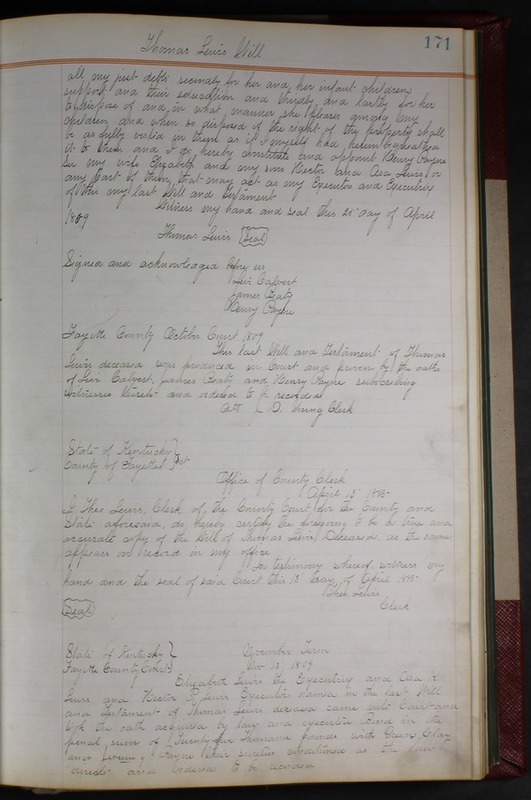 Thomas Lewis Will
171
all my just debts secondly for her and her infant children
support and their education and thirdly and lastly for her
to dispose of and in what manner she pleases among my
children and when so disposed of the right of the property shall
be as fully vested in them as if I myself had herein bequeathed
it to them and I do hereby constitute and appoint Henry Payne
my wife Elizabeth and my son Hector and Asa Lewis or
any part of them that may act as my Executor and Executrix
of this my last Will and Testament
Witness my hand and seal this 25 day of April
1809
Thomas Lewis Seal
Signed and acknowledged before us
Calvert
James Beaty
Henry Payne
Fayette County October Court 1809
This last Will and Testament of Thomas
Lewis deceased was produced in Court and proven by the oaths
of Calvert, James Beaty and Henry Payne subscribing
witnesses thereto and ordered to be recorded
Att D. Young Clerk
State of Kentucky
County of Fayette
Office of County Clerk
April 13
I Theo Lewis, Clerk of the County Court for the County and
State aforesaid, do hereby certify the foregoing to be a true and
accurate copy of the Will of Thomas Lewis Deceased, as the same
appears on record in my office
In testimony whereof witness my
hand and the seal of said Court this 13 day of April
Theo Lewis
Seal
Clerk
State of Kentucky
November Term
Fayette County Court
Nov 13, 1809
Elizabeth Lewis the Executrix and Asa K
Lewis and Hector P Lewis Executors named in the last Will
and Testament of Thomas Lewis deceased came into Court and
took the oath required by law and executed bond in the
penal sum of Twenty four Thousand pounds with Green Clay
and Payne their sureties conditioned as the law
directs and ordered to be recorded